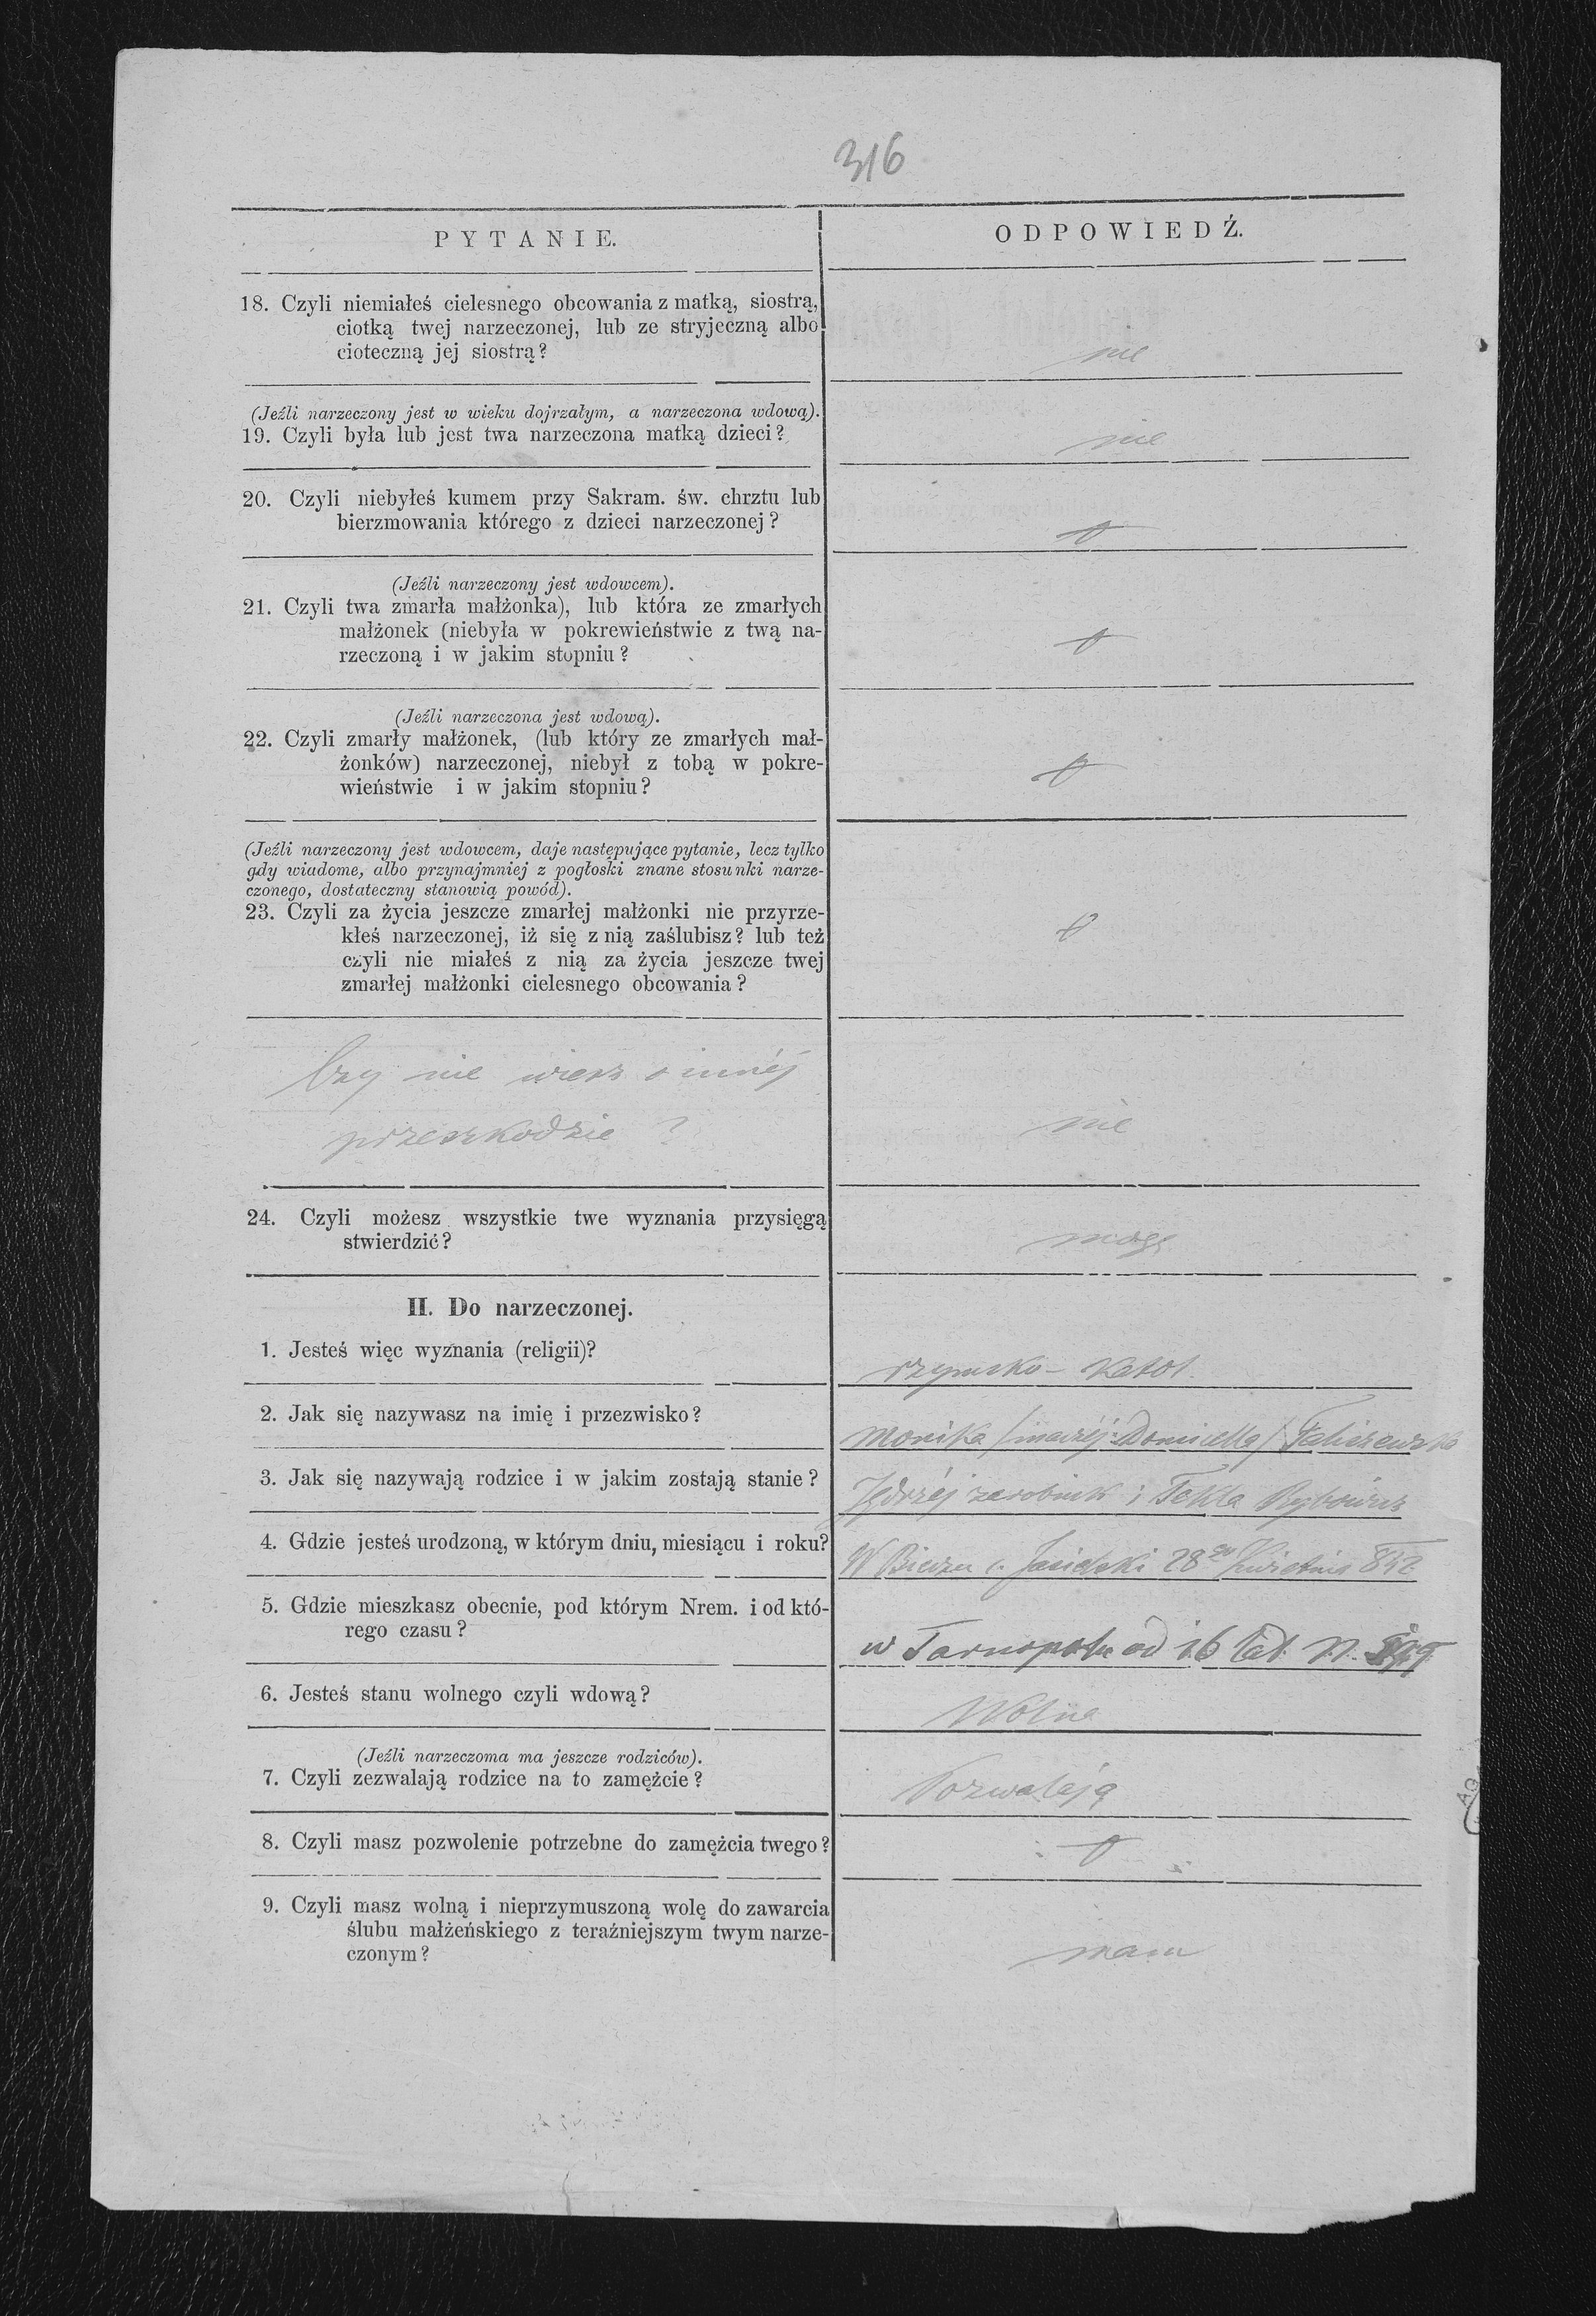 316
PYTANIE.
ODPOWIEDŹ.
18. Czyli niemiałeś cielesnego obcowania z matką, siostrą,
ciotką twej narzeczonej, lub ze stryjeczną albo
cioteczną jej siostrą?
nie
(Jeźli narzeczony jest w wieku dojrzałym, a narzeczona wdową).
19. Czyli była lub jest twa narzeczona matką dzieci?
nie
20. Czyli niebyłeś kumem przy Sakram. św. chrztu lub
bierzmowania którego z dzieci narzeczonej?
(Jeźli narzeczony jest wdowcem).
21. Czyli twa zmarła małżonka), lub która ze zmarłych
małżonek (niebyła w pokrewieństwie z twą na-
rzeczoną i w jakim stopniu?
(Jeźli narzeczona jest wdową).
22. Czyli zmarły małżonek, (lub który ze zmarłych mał-
żonków) narzeczonej, niebył z tobą w pokre-
wieństwie i w jakim stopniu?
(Jeźli narzeczony jest wdowcem, daje następujące pytanie, lecz tylko
gdy wiadome, albo przynajmniej z pogłoski znane stosunki narze-
czonego, dostateczny stanowią powód).
23. Czyli za życia jeszcze zmarłej małżonki nie przyrze-
kłeś narzeczonej, iż się z nią zaślubisz? lub też
czyli nie miałeś z nią za życia jeszcze twej
zmarłej małżonki cielesnego obcowania?
Czy nie wiesz o innéj
przeszkodzie?
nie
24. Czyli możesz wszystkie twe wyznania przysięgą
stwierdzić?
mogę
II. Do narzeczonej.
1. Jesteś więc wyznania (religii)?
rzymsko-katol.
2. Jak się nazywasz na imię i przezwisko?
Monika / inaczéj Domicella /
3. Jak się nazywają rodzice i w jakim zostają stanie?
Jędrzéj zarobnik i Tekla
4. Gdzie jesteś urodzoną, w którym dniu, miesiącu i roku?
W Bieczu c. Jasielski 28go Kwietnia 842
5. Gdzie mieszkasz obecnie, pod którym Nrem. i od któ-
rego czasu?
w Tarnopolu od 16 lat. N.
6. Jesteś stanu wolnego czyli wdową?
Wolna
(Jeźli narzeczoma ma jeszcze rodziców).
7. Czyli zezwalają rodzice na to zamężcie?
Pozwalają
8. Czyli masz pozwolenie potrzebne do zamężcia twego?
9. Czyli masz wolną i nieprzymuszoną wolę do zawarcia
ślubu małżeńskiego z teraźniejszym twym narze-
czonym?
mam